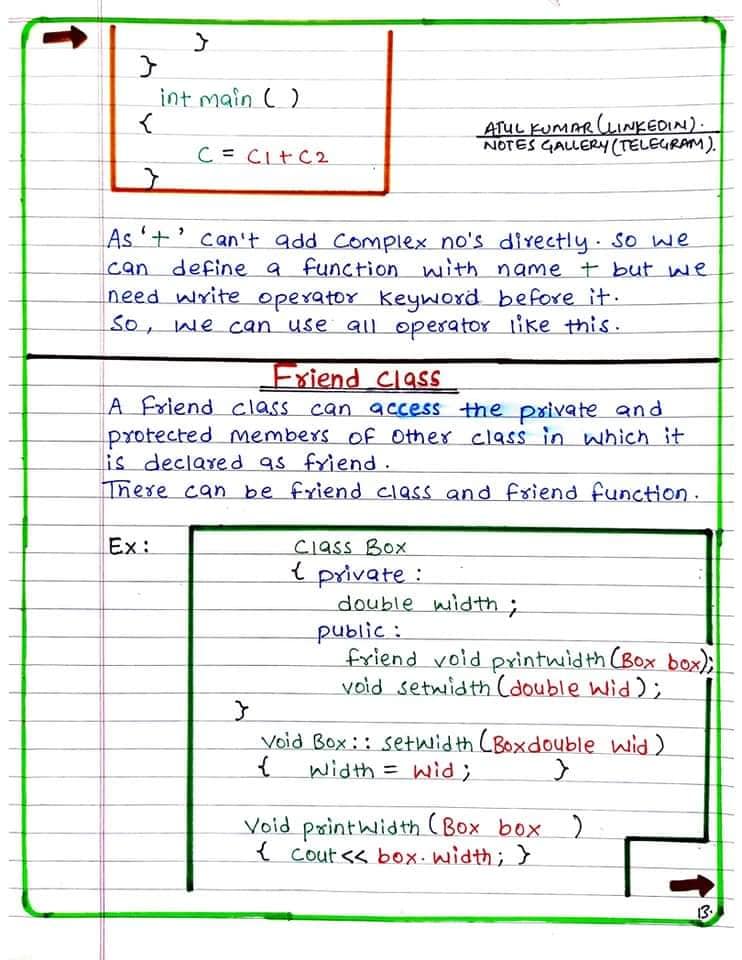 }
}
int main ( )
{
C = C1 + C2
}
ATUL KUMAR (LINKEDIN).
NOTES GALLERY (TELEGRAM).
As '+' can't add complex no's directly. So we
can define a function with name + but we
need write operator keyword before it.
So, we can use all operator like this.
Friend Class
A friend class can access the private and
protected members of other class in which it
is declared as friend.
There can be friend class and friend function.
Ex:
Class Box
{ private :
double width ;
public :
friend void printwidth (Box box);
void setwidth (double wid) ;
}
Void Box:: setwidth (Boxdouble wid)
{ width = wid ; }
Void printwidth (Box box )
{ cout << box.width ; }
13.